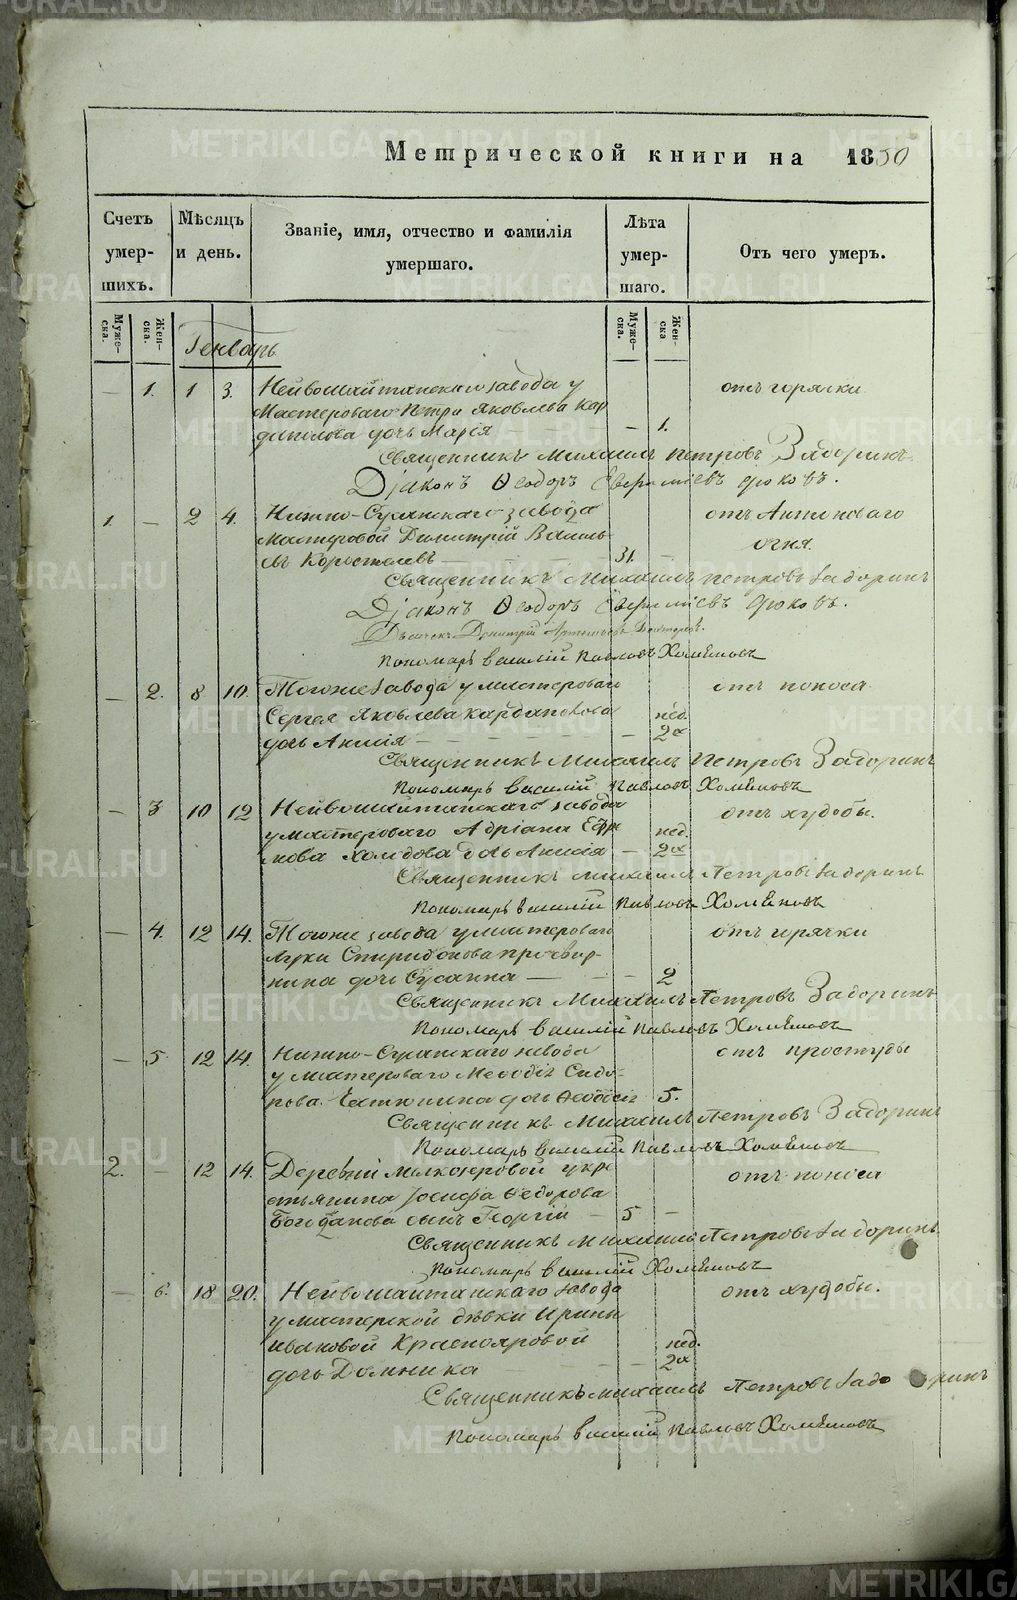 METRIKI.GASO-URAL.RU
Метрической книги на 1850
Счетъ умершихъ.
Мѣсяцъ и день.
Званіе, имя, отчество и фамилія умершаго.
Лѣта умершаго.
Отъ чего умеръ.
Мужеска.
Женска.
Мужеска.
Женска
Генварь
— 1. 1 3. Нейвошайтанскаго завода у отъ горячки
Мастероваго Петра Яковлева Кар
дополова дочь Марія — 1.
Священникъ Михаилъ Петровъ Задоринъ
Діаконъ Ѳеодоръ
1. — 2 4. Нижно-Сусанскаго завода отъ Антонова
мастеровой Димитрій Василь огня.
въ Коростелевъ 31. —
Священникъ Михаилъ Петровъ Задоринъ
Діаконъ Ѳеодоръ
Дьячекъ Димитрій
Пономарь Василій Павловъ Хомяковъ
— 2. 8 10. Тогоже завода у мастероваго отъ поноса
Сергея Яковлева нед.
дочь Анисія — 2х
Священникъ Михаилъ Петровъ Задоринъ
Пономарь Василій Павловъ Хомяковъ
— 3 10 12 Нейвошайтанскаго завода отъ худобы.
у мастероваго Адріана Ефи нед.
мова дочь Анисія — 2х
Священникъ Михаилъ Петровъ Задоринъ
Пономарь Василій Павловъ Хомяковъ
— 4. 12 14. Тогоже завода у мастероваго отъ горячки
Луки Спиридонова просвир
нина дочь Сусанна — — 2
Священникъ Михаилъ Петровъ Задоринъ
Пономарь Василій Павловъ Хомяковъ
— 5 12 14. Нижно-Сусанскаго завода отъ простуды
у мастероваго Меѳодія Сидо-
рова дочь Ѳеодосія 5.
Священникъ Михаилъ Петровъ Задоринъ
Пономарь Василій Павловъ Хомяковъ
2. — 12 14. Деревни у кре отъ поноса
стьянина Іосифа Ѳедорова
Богданова сынъ Георгій — 5 —
Священникъ Михаилъ Петровъ Задоринъ
Пономарь Василій Хомяковъ
— 6. 18 20. Нейвошайтанскаго завода отъ худобы.
у мастерской дѣвки Ирины
Ивановой Краснояровой нед.
дочь Домника 2х
Священникъ Михаилъ Петровъ Задоринъ
Пономарь Василій Павловъ Хомяковъ